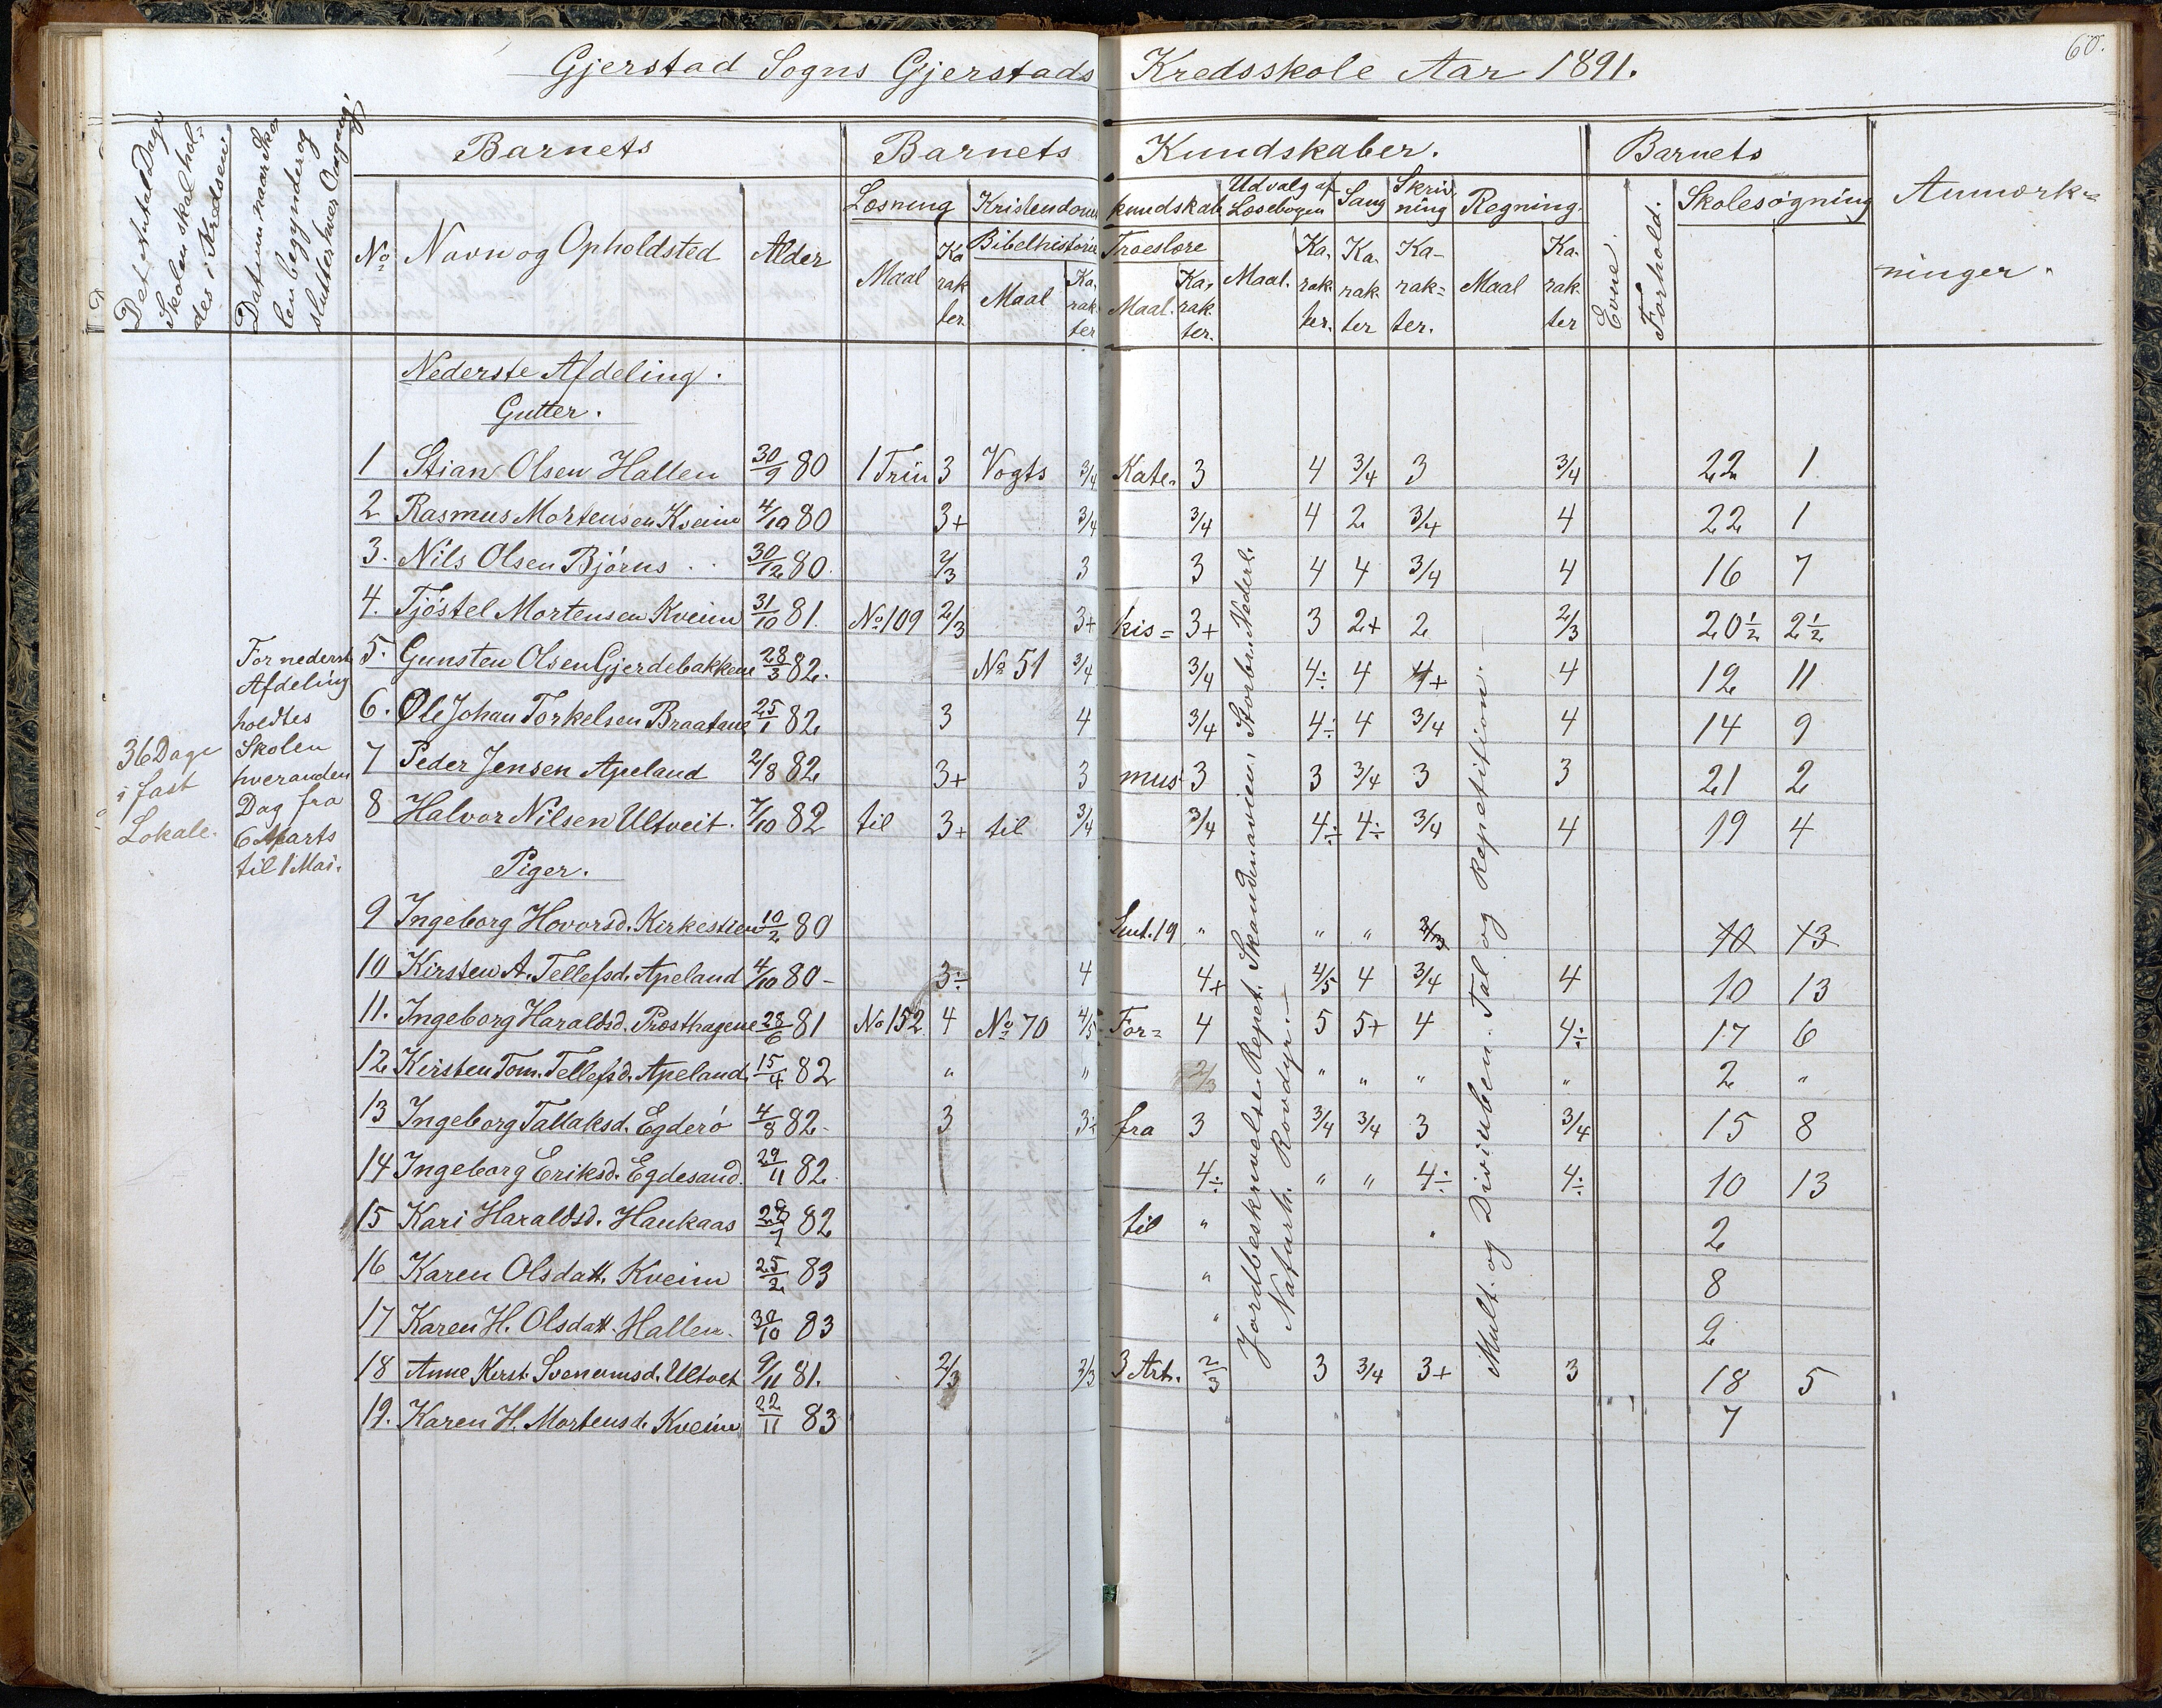 60.
Gjerstad Sogns Gjerstads Kredsskole Aar 1891.
Det Antal Dage Skolen skal holdes i Kredsen
Datum naar Skolen begynder og slutter hver Omgang.
Barnets
Barnets Kundskaber.
Barnets
Anmærkninger.
No Navn og Opholdsted Alder
Læsning Maal Karakter
Kristendomskundskab
Bibelhistorie Maal Karakter
Troeslære Maal. Karakter.
Udvalg af Læsebogen Maal. Karakter.
Sang Karakter
Skrivning Karakter.
Regning. Maal Karakter
Evne.
Forhold.
Skolesøgning
Nederste Afdeling.
Gutter.
1 Stian Olsen Hallen 30/9 80 1 Trin 3 Vogts 3/4 Kate- 3 4 3/4 3 3/4 22 1
2 Rasmus Mortensen Kveim 4/10 80 3+ 3/4 3/4 4 2 3/4 4 22 1
3. Nils Olsen Bjørns 30/12 80. 2/3 3 3 4 4 3/4 4 16 7
4. Tjöstel Mortensen Kveim 31/10 81. No 109 2/3 3+ kis= 3+ 3 2+ 2 2/3 20½ 2½
5. Gunsten Olsen Gjerdebakkene 28/3 82. No 51 3/4 3/4 4÷ 4 4+ 4 12 11
6. Ole Johan Torkelsen Braatane 25/1 82 3 4 3/4 4÷ 4 3/4 4 14 9
7 Peder Jensen Apeland 2/8 82 3+ 3 mus 3 3 3/4 3 3 21 2
8 Halvor Nilsen Ultveit. 7/10 82 til 3+ til 3/4 3/4 4÷ 4÷ 3/4 4 19 4
For nederste
Afdeling
holdtes
Skolen
hveranden
Dag fra
6 Marts
til 1 Mai.
36 Dage
i fast
Lokale.
Piger.
9 Ingeborg Hovorsd. Kirkestien 10/2 80 Lut. 19 " " " 2/3 10 13
10 Kirsten A. Tellefsd. Apeland 4/10 80- 3÷ 4 4+ 4/5 4 3/4 4 10 13
11. Ingeborg Haraldsd. Præsthagene 28/6 81 No 152 4 No 70 4/5 For= 4 5 5+ 4 4÷ 17 6
12 Kirsten Tom. Tellefsd. Apeland 15/4 82 " " 2/3 " " " " 2 "
13 Ingeborg Tallaksd. Egderö 4/8 82- 3 3÷ fra 3 3/4 3/4 3 3/4 15 8
14 Ingeborg Eriksd. Egdesand. 29/11 82. 4÷ " " 4÷ 4÷ 10 13
15 Kari Haraldsd. Haukaas 82 til " 2
16 Karen Olsdatt. Kveim 25/2 83 " 8
17 Karen H. Olsdatt. Hallen. 30/10 83 " 2
18 Anne Kirst. Svenumsd. Ultvet 9/11 81. 2/3 2/3 3 Art. 2/3 3 3/4 3+ 3 18 5
19. Karen H. Mortensd. Kveim 22/11 83 7
Jordbeskrivelse. Repet. Skandinavien. Storbr. Nederl.
Naturh. Rovdyr.
Mult. og Dividenden. Tal og Repetition.